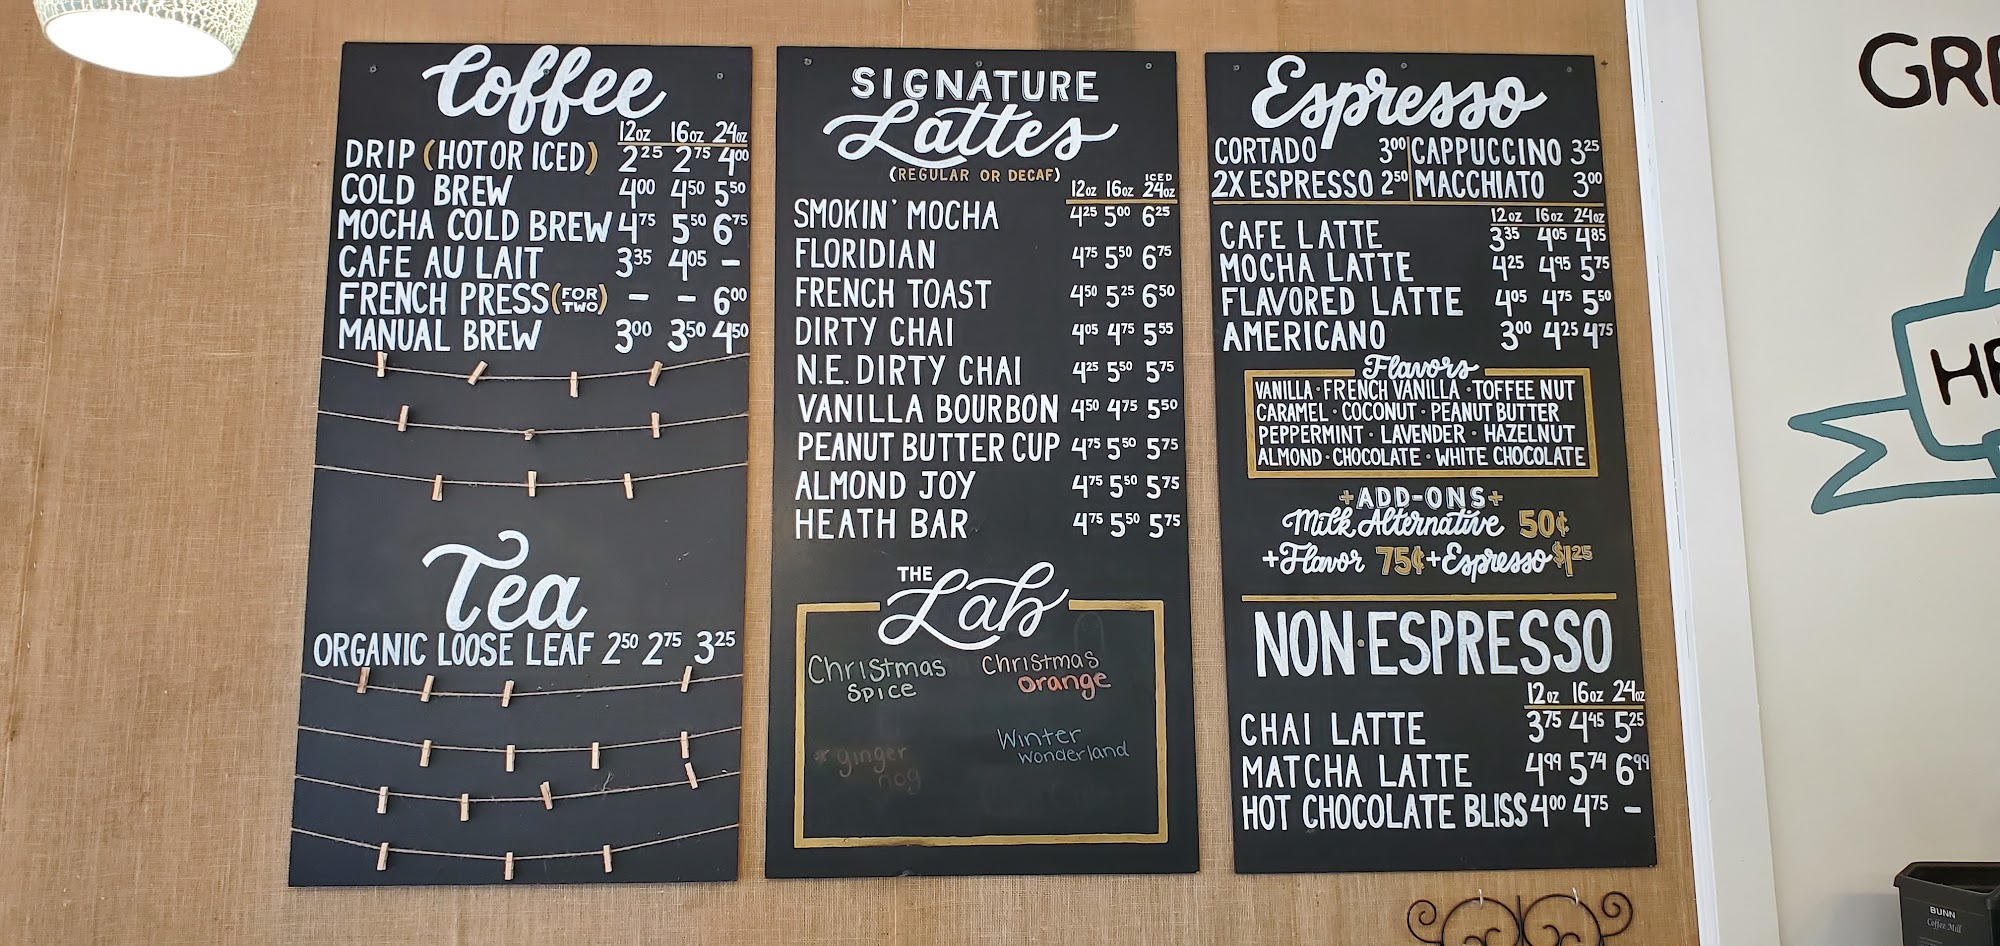 Coffee
12oz 16oz 24oz
DRIP (HOT OR ICED) 2²⁵ 2⁷⁵ 4⁰⁰
COLD BREW 4⁰⁰ 4⁵⁰ 5⁵⁰
MOCHA COLD BREW 4⁷⁵ 5⁵⁰ 6⁷⁵
CAFE AU LAIT 3³⁵ 4⁰⁵ –
FRENCH PRESS (FOR TWO) – – 6⁰⁰
MANUAL BREW 3⁰⁰ 3⁵⁰ 4⁵⁰
Tea
ORGANIC LOOSE LEAF 2⁵⁰ 2⁷⁵ 3²⁵
SIGNATURE
Lattes
(REGULAR OR DECAF)
12oz 16oz ICED 24oz
SMOKIN' MOCHA 4²⁵ 5⁰⁰ 6²⁵
FLORIDIAN 4⁷⁵ 5⁵⁰ 6⁷⁵
FRENCH TOAST 4⁵⁰ 5²⁵ 6⁵⁰
DIRTY CHAI 4⁰⁵ 4⁷⁵ 5⁵⁵
N.E. DIRTY CHAI 4²⁵ 5⁵⁰ 5⁷⁵
VANILLA BOURBON 4⁵⁰ 4⁷⁵ 5⁵⁰
PEANUT BUTTER CUP 4⁷⁵ 5⁵⁰ 5⁷⁵
ALMOND JOY 4⁷⁵ 5⁵⁰ 5⁷⁵
HEATH BAR 4⁷⁵ 5⁵⁰ 5⁷⁵
THE Lab
Christmas
spice
Christmas
orange
*ginger
nog
Winter
wonderland
Espresso
CORTADO 3⁰⁰ CAPPUCCINO 3²⁵
2X ESPRESSO 2⁵⁰ MACCHIATO 3⁰⁰
12oz 16oz 24oz
CAFE LATTE 3³⁵ 4⁰⁵ 4⁸⁵
MOCHA LATTE 4²⁵ 4⁹⁵ 5⁷⁵
FLAVORED LATTE 4⁰⁵ 4⁷⁵ 5⁵⁰
AMERICANO 3⁰⁰ 4²⁵ 4⁷⁵
Flavors
VANILLA · FRENCH VANILLA · TOFFEE NUT
CARAMEL · COCONUT · PEANUT BUTTER
PEPPERMINT · LAVENDER · HAZELNUT
ALMOND · CHOCOLATE · WHITE CHOCOLATE
+ADD-ONS+
Milk Alternative 50¢
+Flavor 75¢ +Espresso $1²⁵
NON·ESPRESSO
12oz 16oz 24oz
CHAI LATTE 3⁷⁵ 4⁴⁵ 5²⁵
MATCHA LATTE 4⁹⁹ 5⁷⁴ 6⁹⁹
HOT CHOCOLATE BLISS 4⁰⁰ 4⁷⁵ –
GRE
HE
BUNN
Coffee Mill